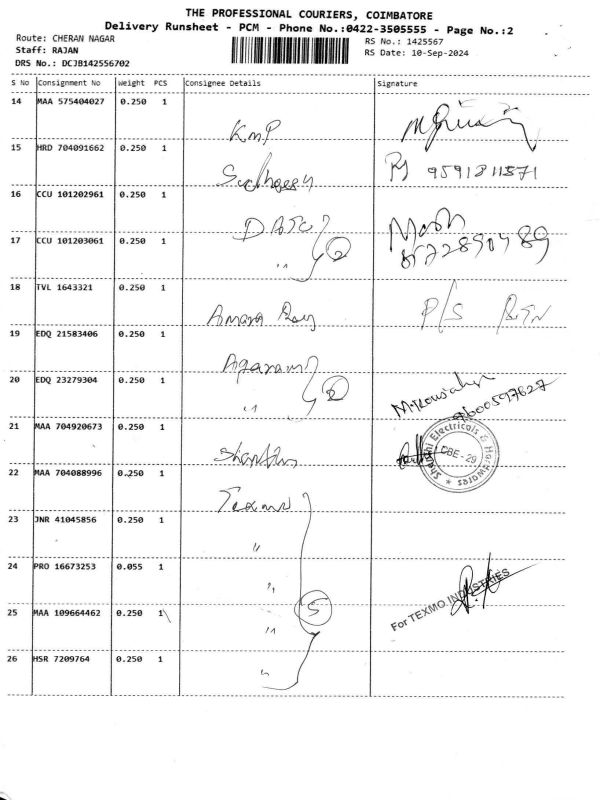 THE PROFESSIONAL COURIERS, COIMBATORE
Delivery Runsheet - PCM - Phone No.:0422-3505555 - Page No.:2
Route: CHERAN NAGAR
Staff: RAJAN
DRS No.: DCJB142556702
RS No.: 1425567
RS Date: 10-Sep-2024
S No Consignment No Weight PCS Consignee Details Signature
14 MAA 575404027 0.250 1 KMP
15 HRD 704091662 0.250 1 9591211571
16 CCU 101202961 0.250 1
17 CCU 101203061 0.250 1 " 2
18 TVL 1643321 0.250 1 P/S
19 EDQ 21583406 0.250 1 Agaram
20 EDQ 23279304 0.250 1 " 2 9600597627
21 MAA 704920673 0.250 1 Shanthi Electricals & Hardwares CBE-29
22 MAA 704088996 0.250 1 Texmo
23 JNR 41045856 0.250 1 "
24 PRO 16673253 0.055 1 "
25 MAA 109664462 0.250 1 " 5 For TEXMO INDUSTRIES
26 HSR 7209764 0.250 1 "